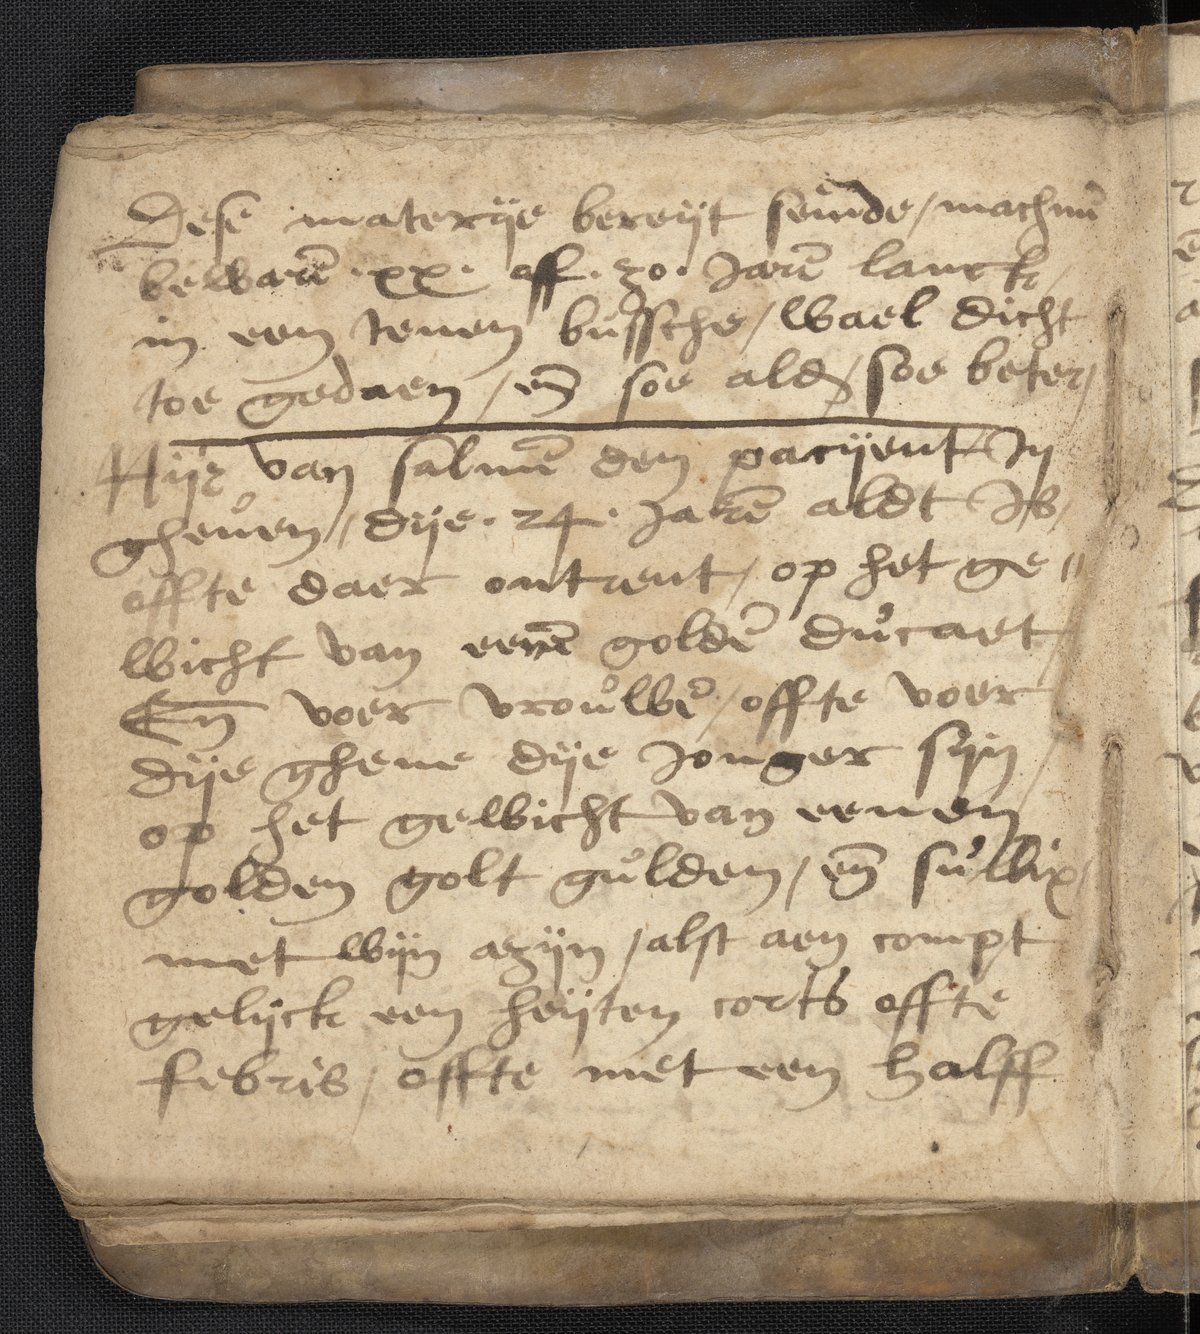 Dese materije bereijt seinde / machmē
bewarē .xx. off .30. Jarē lanck /
in een tenen bůssche / wael dicht
toe gedaen / eñ soe alder / soe beter /
Hijr van salmē den pacijent In
gheůen / dije .24. Jarē aldt Is /
offte daer ontrent / op het ge〃
wicht van eenē goldē důcaet /
Eñ voer vroůwē / offte voer
dije ghene dije Jonger sijn /
op het gewicht van eenen
golden golt gůlden / eñ sůlwix /
met wijn azijn / alst aen compt
gelijck een heijten corts offte
febris / offte met een halff